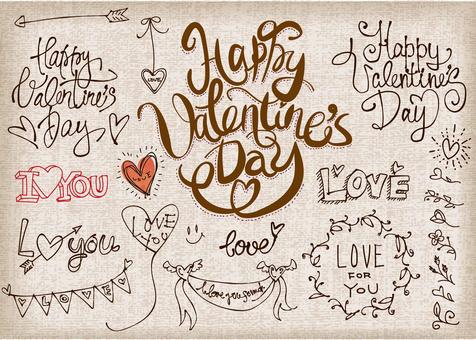 Happy
Valentine's
Day
LOVE
Happy
Valentine's
Day
Happy
Valentine's
Day
I YOU
LOVE
LOVE
YOU
LOVE
L YOU
love
LOVE
FOR
YOU
LOVE
I love you so much